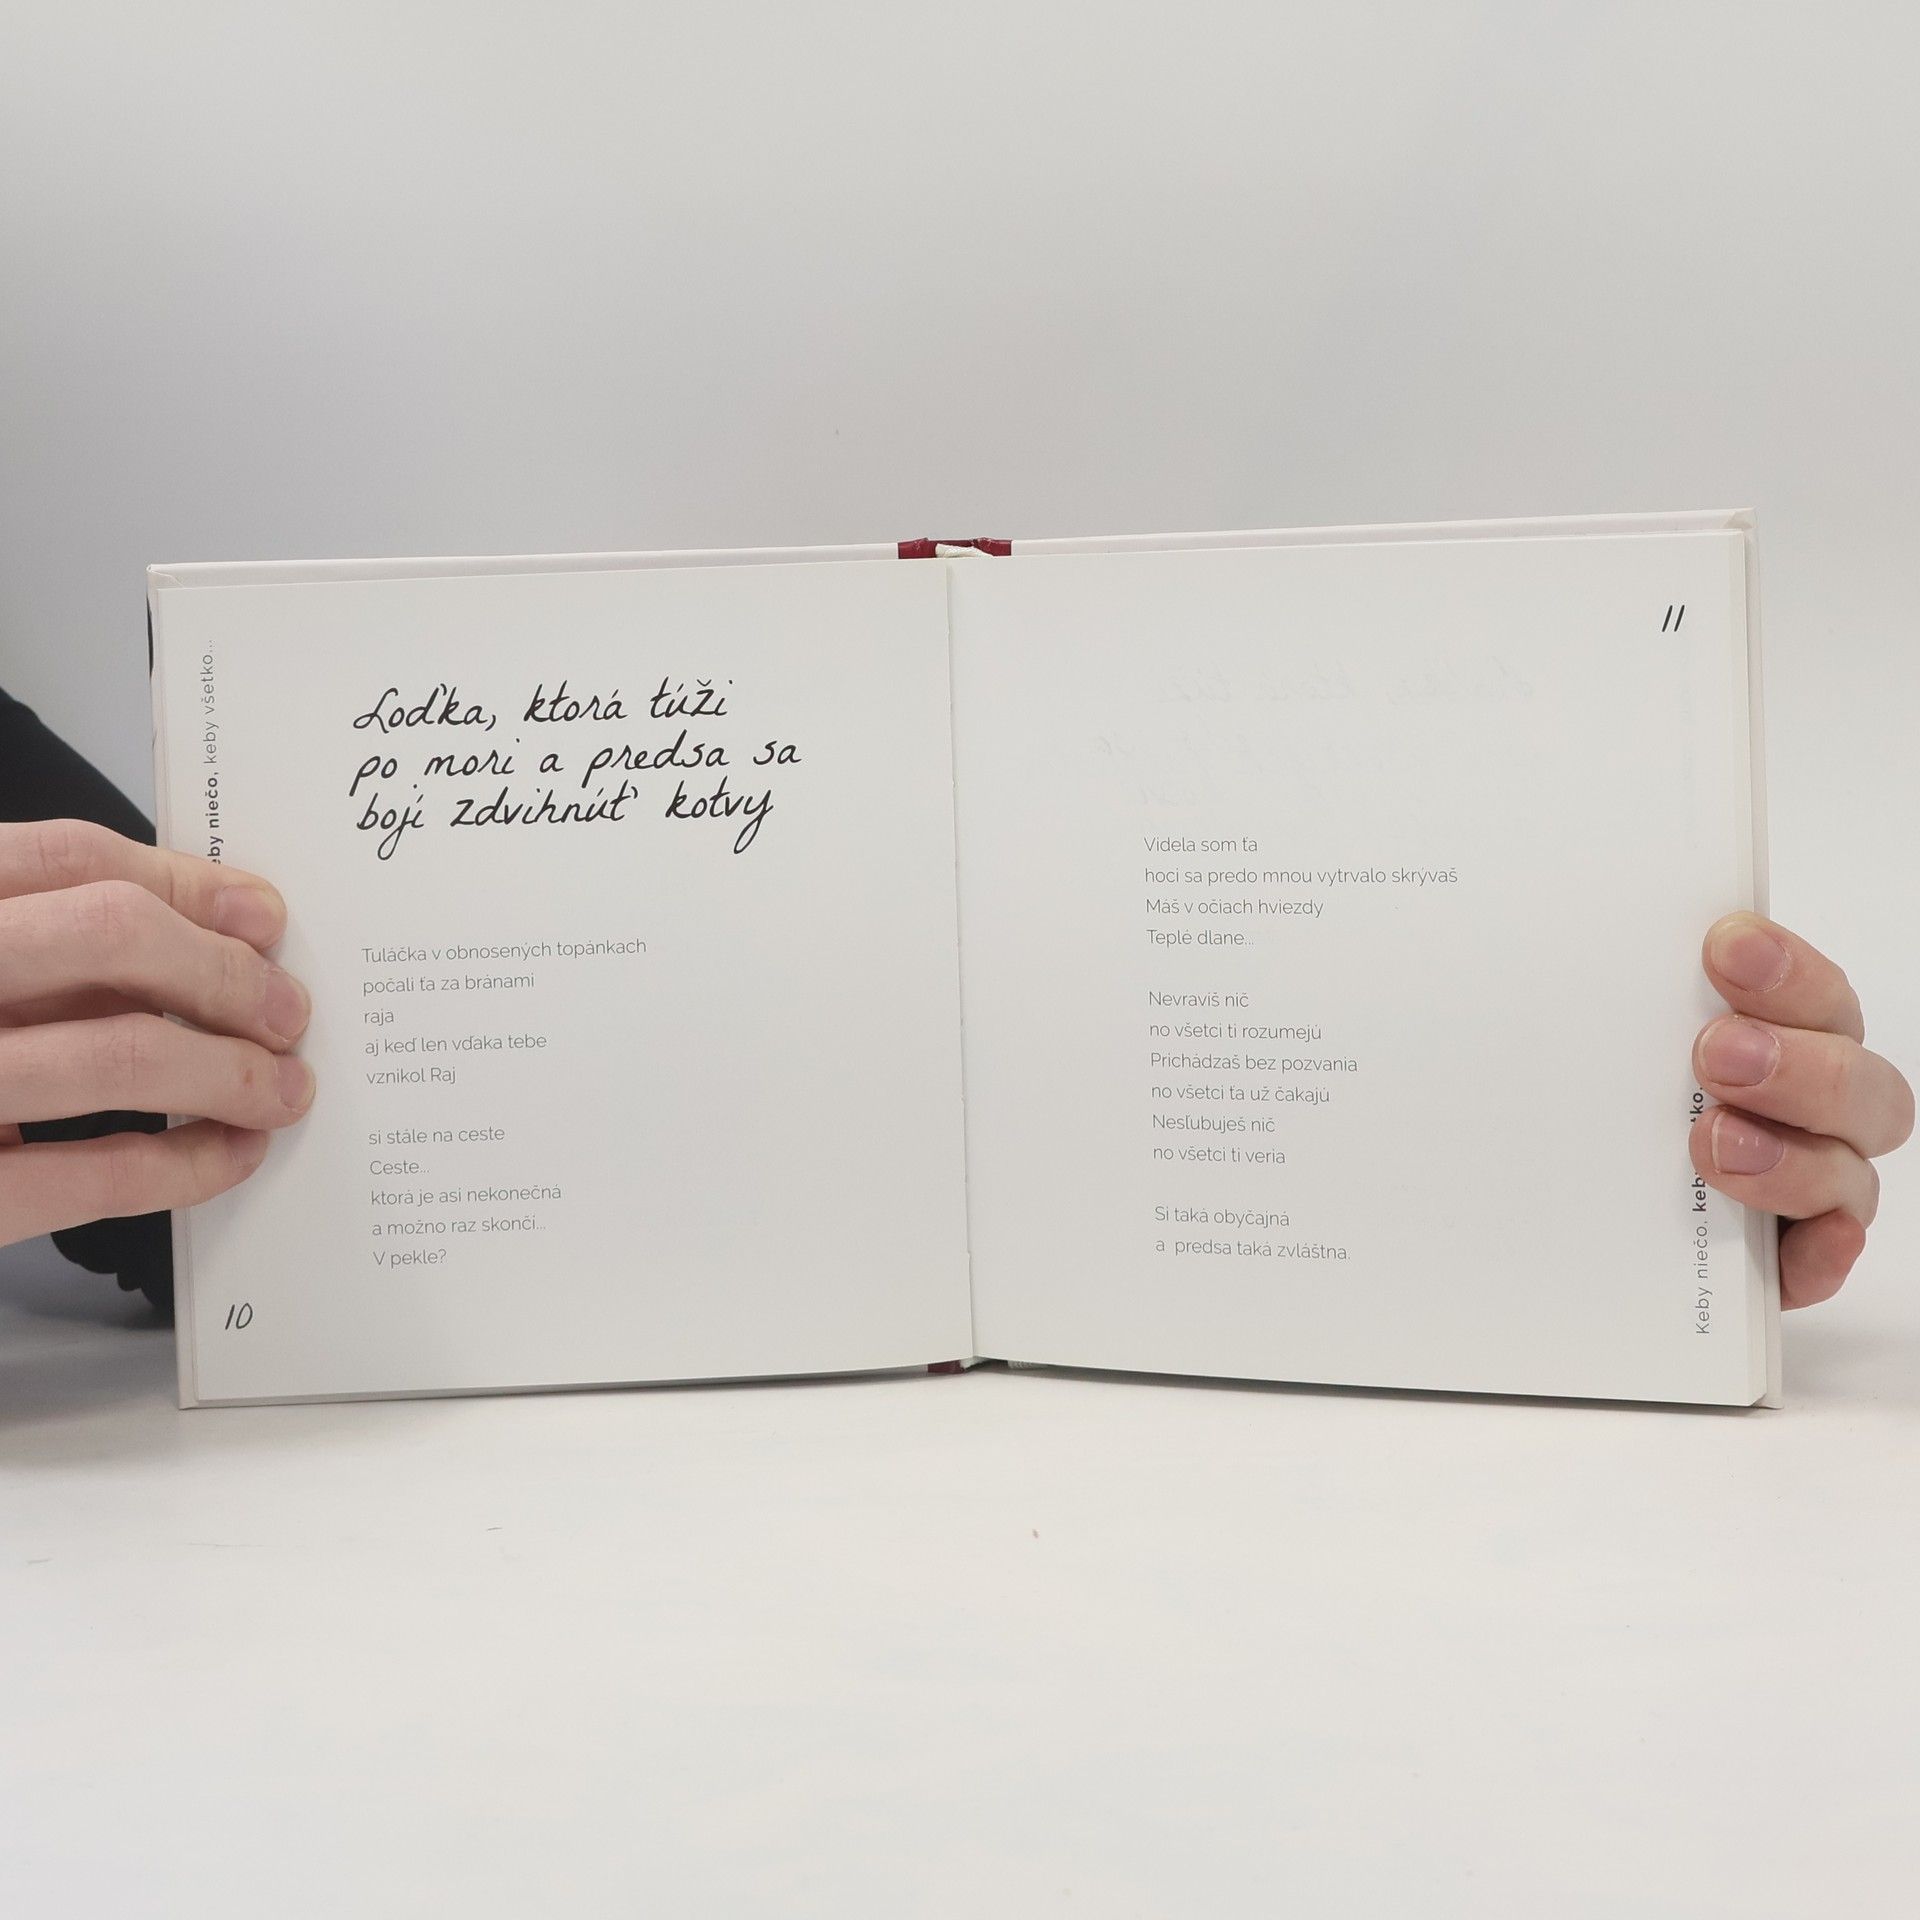 niečo, keby všetko...
Loďka, ktorá túži
po mori a predsa sa
bojí zdvihnúť kotvy
Tuláčka v obnosených topánkach
počali ťa za bránami
raja
aj keď len vďaka tebe
vznikol Raj
si stále na ceste
Ceste...
ktorá je asi nekonečná
a možno raz skončí...
V pekle?
10
11
Videla som ťa
hoci sa predo mnou vytrvalo skrývaš
Máš v očiach hviezdy
Teplé dlane...
Nevravíš nič
no všetci ti rozumejú
Prichádzaš bez pozvania
no všetci ťa už čakajú
Nesľubuješ nič
no všetci ti veria
Si taká obyčajná
a predsa taká zvláštna.
Keby niečo,